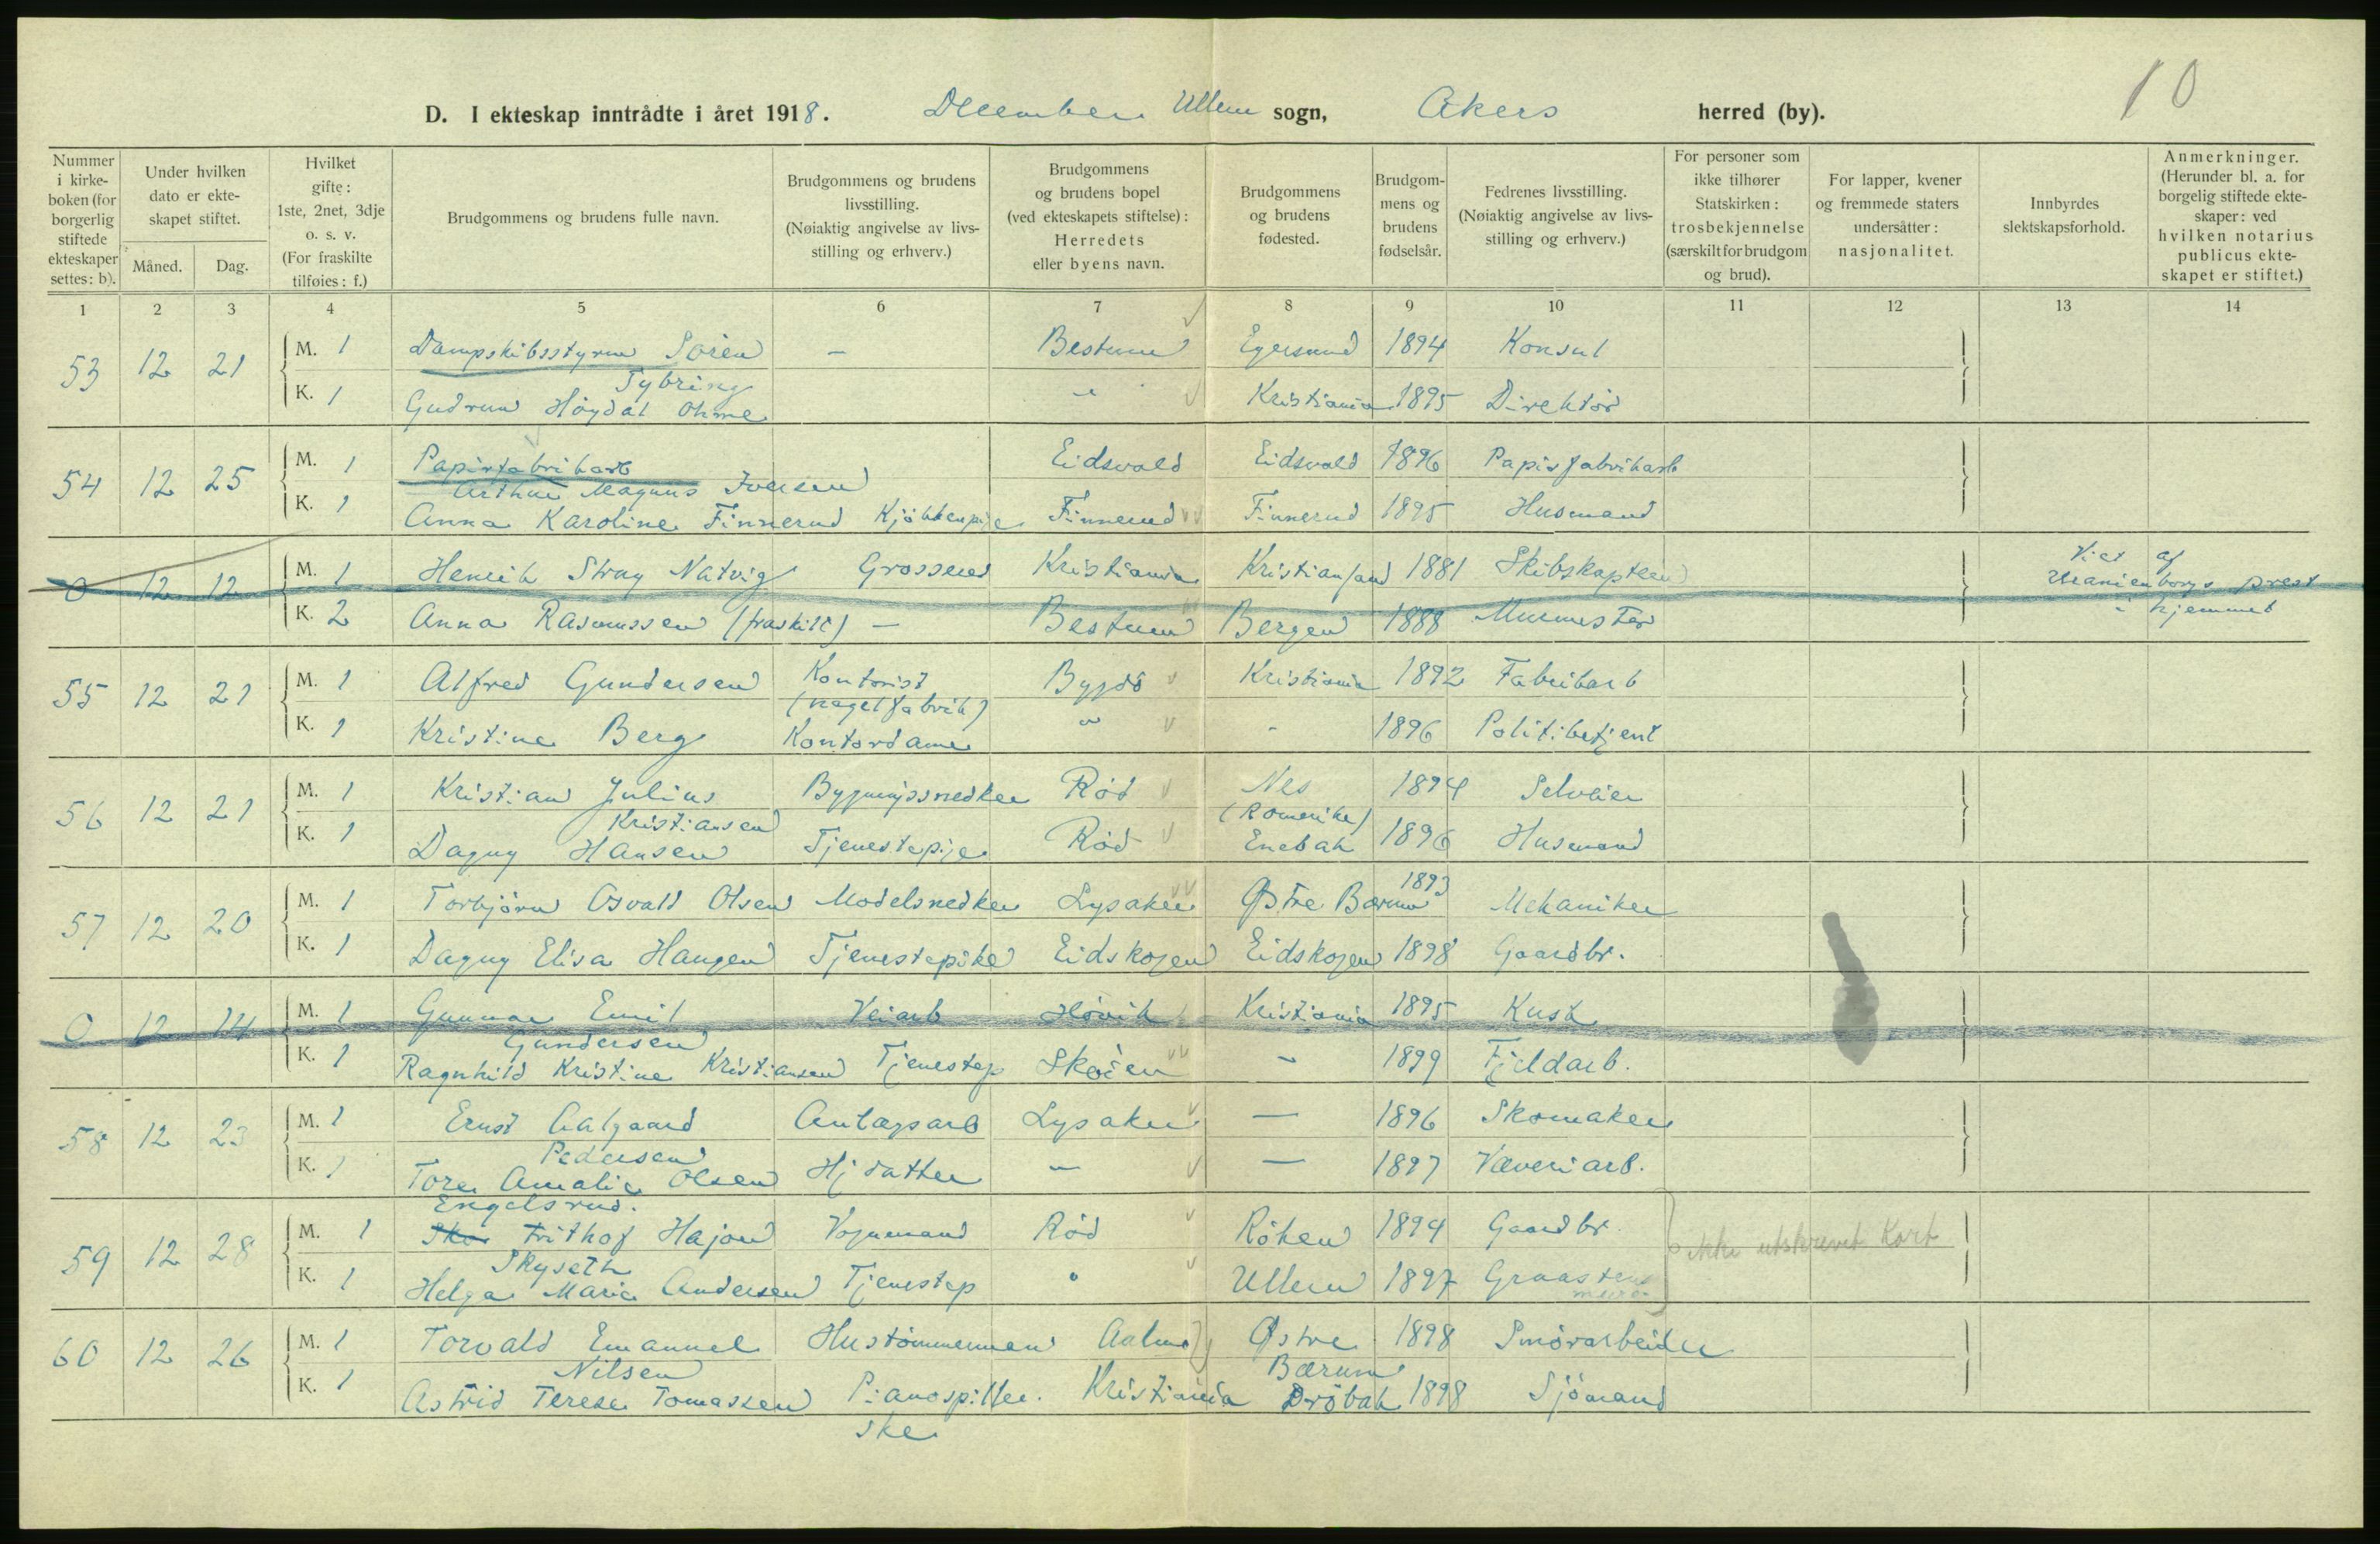 10
D. I ekteskap inntrådte i året 1918. December Ullern sogn, Akers herred (by).
Nummer i kirkeboken (for borgerlig stiftede ekteskaper settes: b).
Under hvilken dato er ekteskapet stiftet.
Måned. Dag.
Hvilket gifte: 1ste, 2net, 3dje o. s. v. (For fraskilte tilføies: f.)
Brudgommens og brudens fulle navn.
Brudgommens og brudens livsstilling. (Nøiaktig angivelse av livsstilling og erhverv.)
Brudgommens og brudens bopel (ved ekteskapets stiftelse): Herredets eller byens navn.
Brudgommens og brudens fødested.
Brudgommens og brudens fødselsår.
Fedrenes livsstilling. (Nøiaktig angivelse av livsstilling og erhverv.)
For personer som ikke tilhører Statskirken: trosbekjennelse (særskilt for brudgom og brud).
For lapper, kvener og fremmede staters undersåtter: nasjonalitet.
Innbyrdes slektskapsforhold.
Anmerkninger. (Herunder bl. a. for borgelig stiftede ekteskaper: ved hvilken notarius publicus ekteskapet er stiftet.)
1 2 3 4 5 6 7 8 9 10 11 12 13 14
53 12 21 M. 1 Dampskibsstyrm Sören – Bestum Egersund 1894 Konsul
Tybring
K. 1 Gudrun Höydal Ohme " Kristiania 1895 Direktör
54 12 25 M. 1 Papirfabrikarb Eidsvold Eidsvold 1896 Papirfabrikarb
Arthur Magnus Iversen
K. 1 Anna Karoline Finnerud Kjökkenpige Finnerud Finnerud 1895 Husmand
0 12 12 M. 1 Henrik Stray Natvig Grosserer Kristiania Kristiansand 1881 Skibskaptein Viet af
Uranienborgs prest
K. 2 Anna Rasmussen (fraskilt) – Bestum Bergen 1888 Murmester i hjemmet
55 12 21 M. 1 Alfred Gundersen Kontorist Bygdö Kristiania 1892 Fabrikarb
(nagelfabrik)
K. 1 Kristine Berg Kontordame " - 1896 Politibetjent
56 12 21 M. 1 Kristian Julius Bygningssnedker Röd Nes 1894 Selveier
Kristiansen (Romerike)
K. 1 Dagny Hansen Tjenestepige Röd Enebak 1896 Husmand
57 12 20 M. 1 Torbjörn Osvald Olsen Modelsnedker Lysaker Østre Bærum 1893 Mekaniker
K. 1 Dagny Elisa Haugen Tjenestepike Eidskogen Eidskogen 1898 Gaardbr.
0 12 14 M. 1 Gunnar Emil Veiarb Hövik Kristiania 1895 Kusk
Gundersen
K. 1 Ragnhild Kristine Kristiansen Tjenestep Sköien – 1899 Fjeldarb.
58 12 23 M. 1 Ernst Aalgaard Anlægsarb Lysaker – 1896 Skomaker
Pedersen
K. 1 Tora Amalie Olsen Hj datter – – 1897 Væveriarb.
Engelsrud.
59 12 28 M. 1 Skor Frithof Hajon Vognmand Röd Röken 1894 Gaardbr. ikke utskrevet Kort
Skyseth
K. 1 Helga Marie Andersen Tjenestep " Ullern 1897 Graastens
murer
60 12 26 M. 1 Torvald Emanuel Hustömmerman Østre 1898 Smörarbeider
Nilsen Bærum
K. 1 Astrid Terese Tomassen Pianospiller Kristiania Dröbak 1898 Sjömand
ske